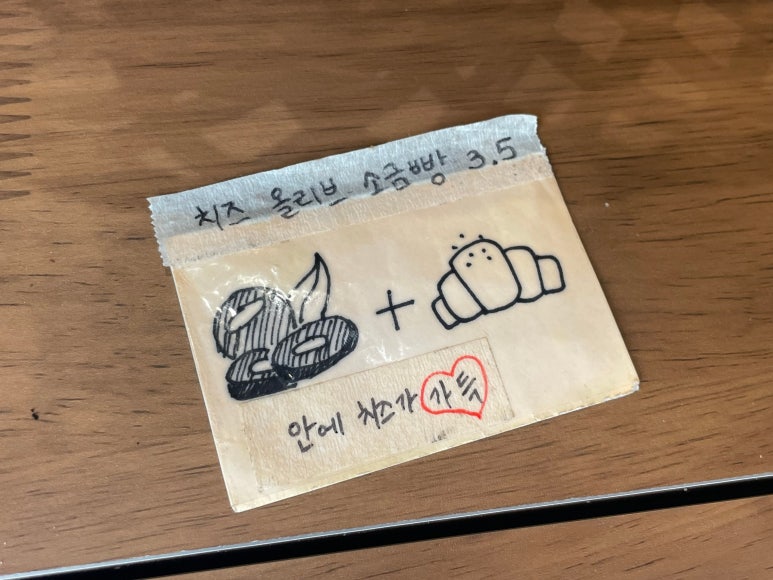 치즈 올리브 소금빵 3.5
+
안에 치즈가 가득